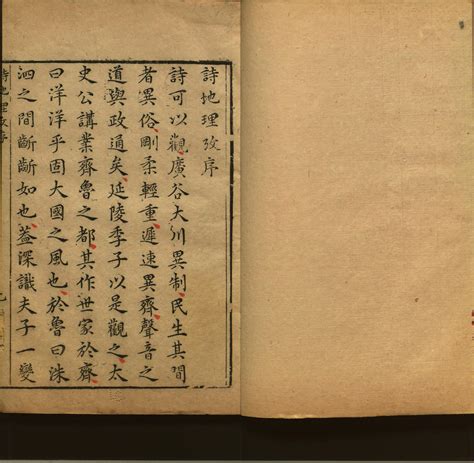 詩地理攷序
詩可以觀廣谷大川異制民生其間
者異俗剛柔輕重遲速異齊聲音之
道與政通矣延陵季子以是觀之太
史公講業齊魯之都其作世家於齊
曰洋洋乎固大國之風也於魯曰洙
泗之間齗齗如也蓋深識夫子一變
詩地理攷序